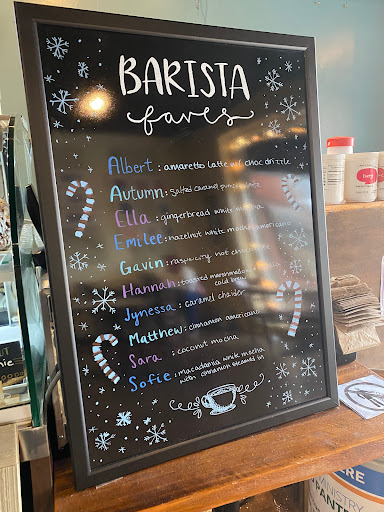 BARISTA
faves
Albert: amaretto latte w/ choc drizzle
Autumn: salted caramel
Ella: gingerbread white mocha
Emilee: hazelnut white mocha americano
Gavin: raspberry hot chocolate
Hannah: toasted marshmallow
cold brew
Jynessa: caramel chaider
Matthew: cinnamon americano
Sara: coconut mocha
Sofie: macadamia white mocha
with cinnamon steamed in
MINISTRY